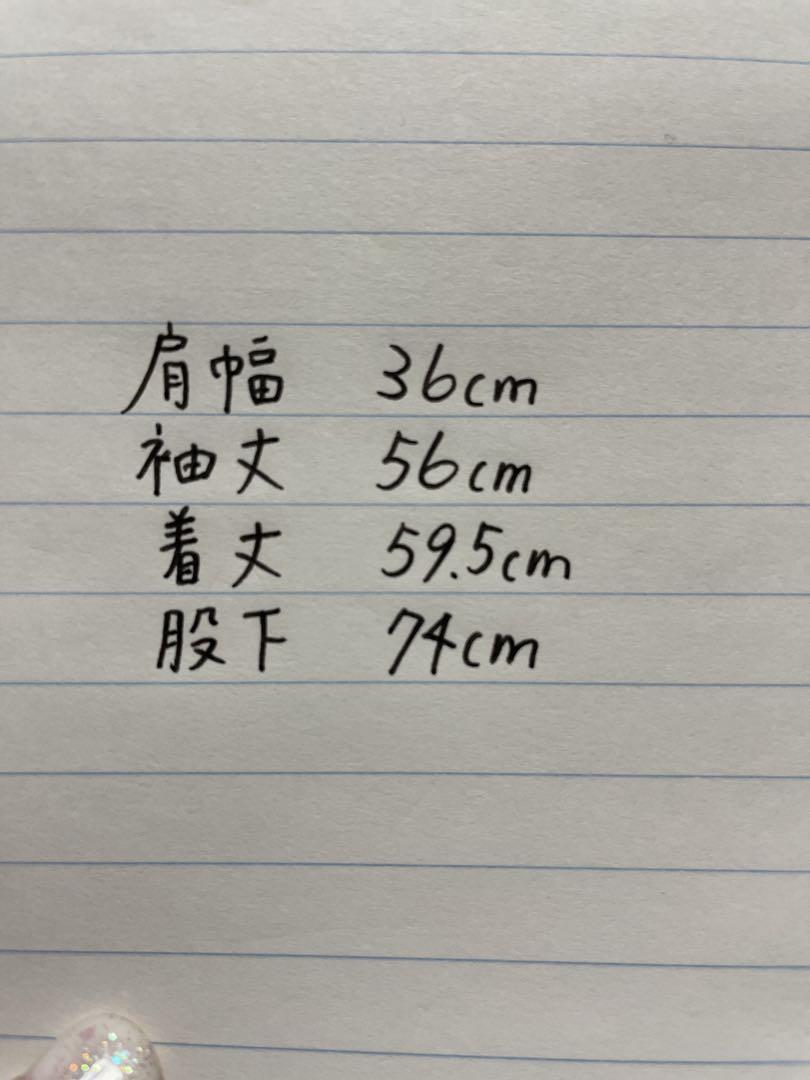 肩幅 36cm
袖丈 56cm
着丈 59.5cm
股下 74cm